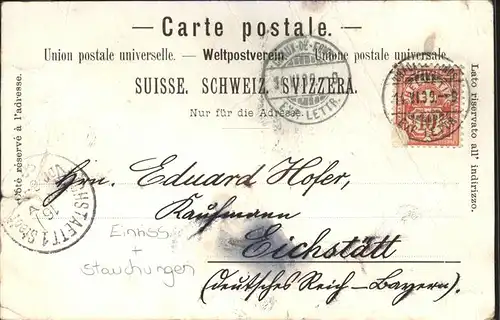 — Carte postale. —
Union postale universelle. — Weltpostverein. — Unione postale universale.
SUISSE. SCHWEIZ. SVIZZERA.
Nur für die Adresse.
Côté réservé à l'adresse.
Lato riservato all' indirizzo.
Hrn. Eduard Hofer,
Kaufmann
Eichstätt
(Deutsches Reich – Bayern).
Einriss
+
Stauchungen
EXP. LETTR.